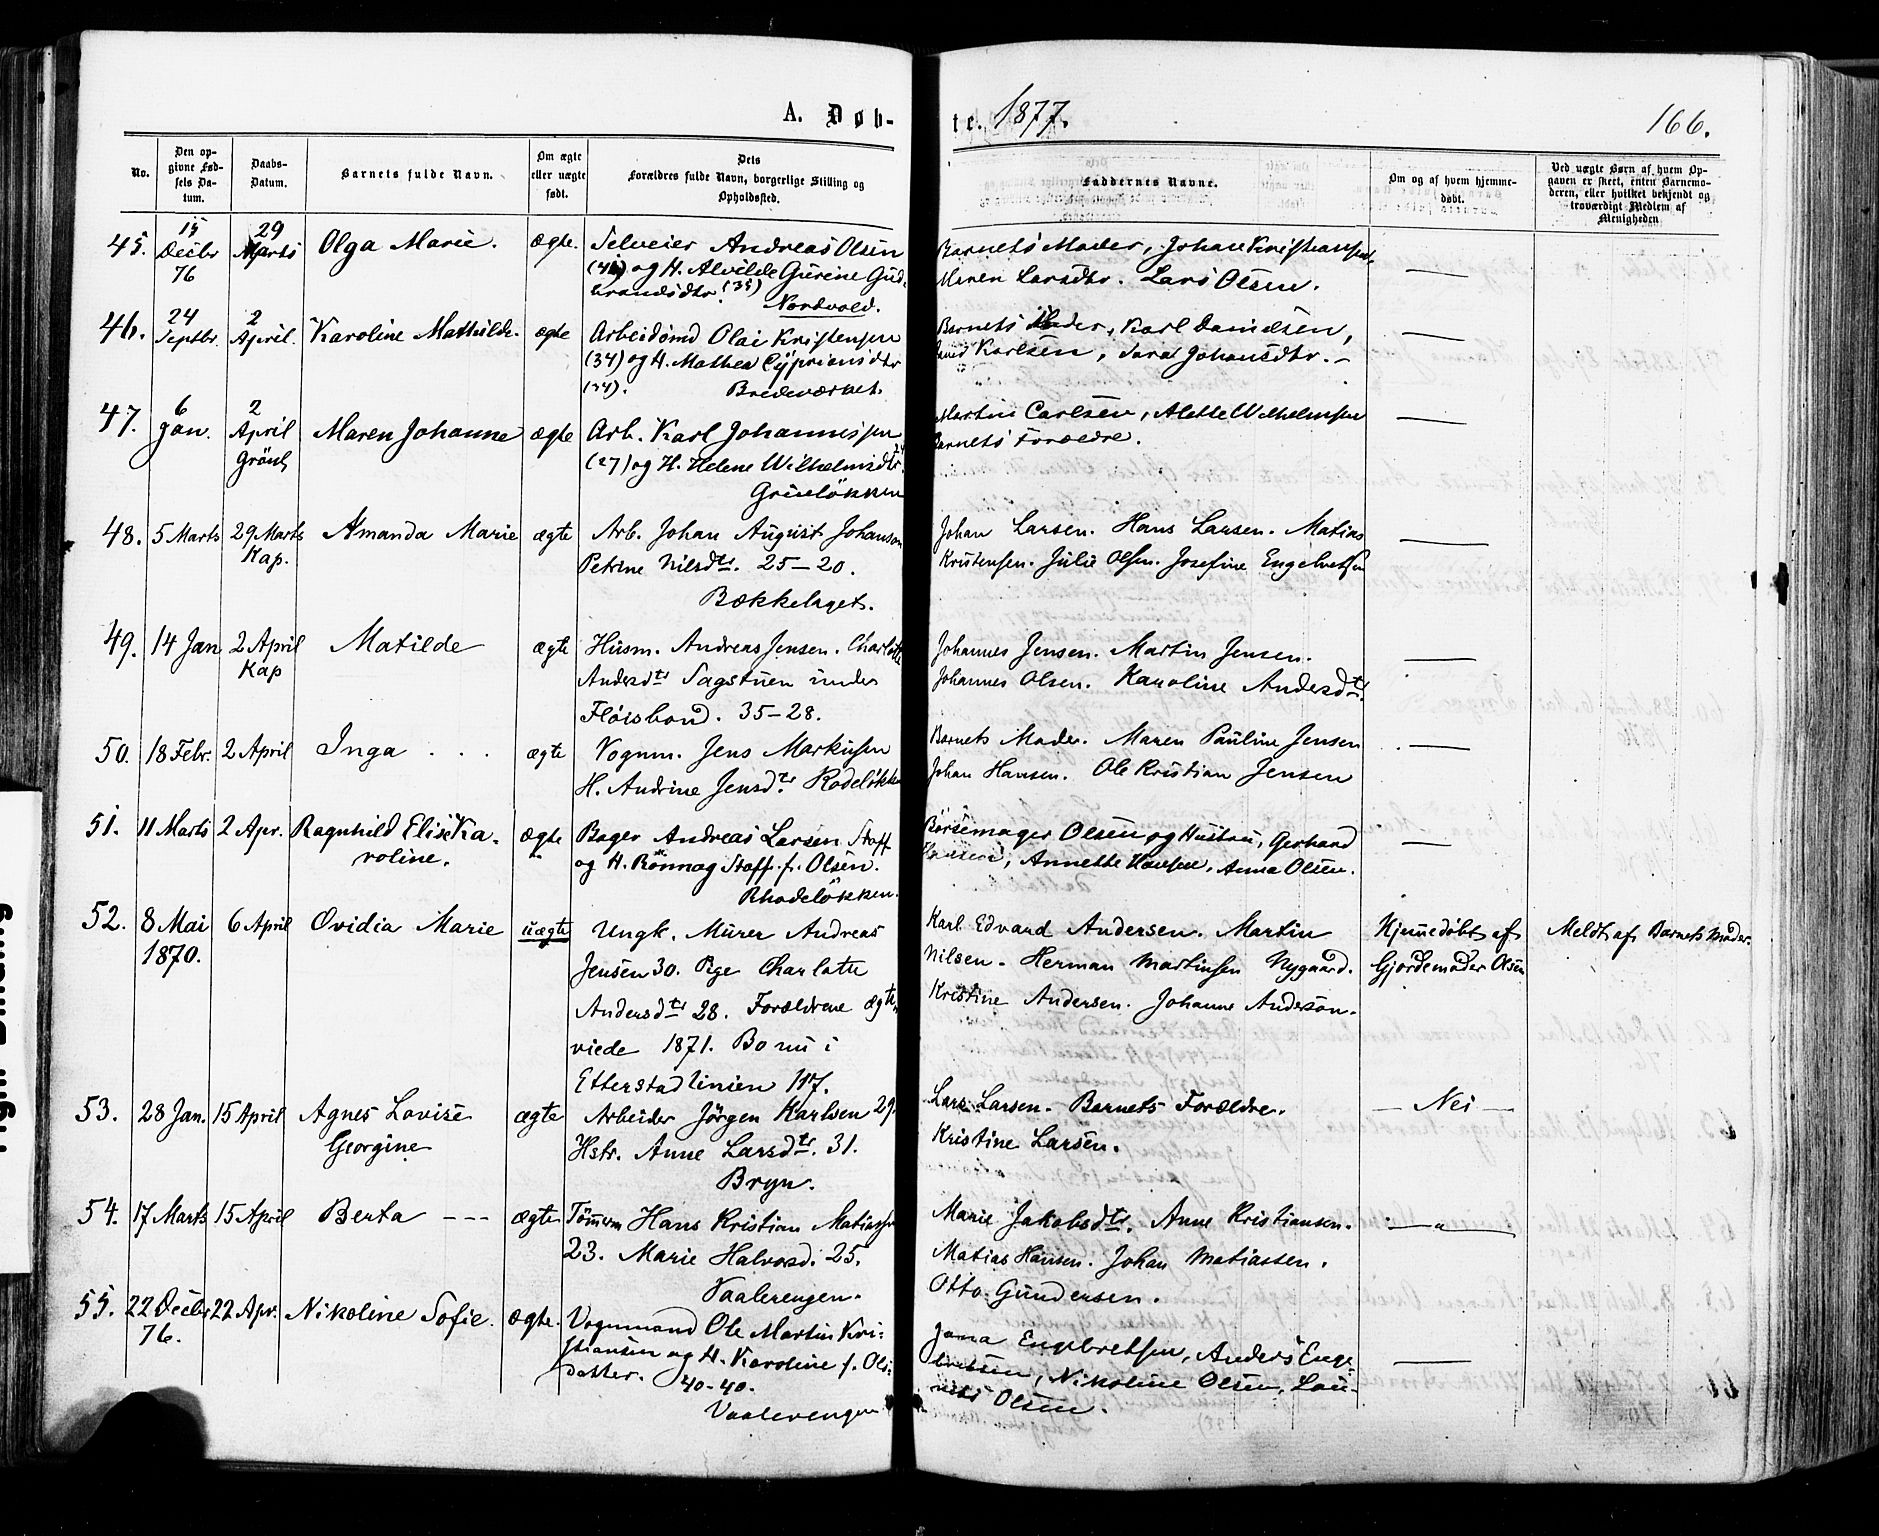 A. Døb-
te. 1877.
166.
No.
Den op-
givne Fød-
sels Da-
tum.
Daabs-
Datum.
Barnets fulde Navn.
Om ægte
eller uægte
født.
Dets
Forældres fulde Navn, borgerlige Stilling og
Opholdssted.
Faddernes Navne.
Om og af hvem hjemme-
døbt.
Ved uægte Børn af hvem Op-
gaven er skeet, enten Barnemo-
deren, eller hvilket bekjendt og
troværdigt Medlem af
Menigheden
45. 15 Decbr 76
29 Marts
Olga Marie.
ægte.
Selveier Andreas Olsen
og H. Alvilde Gurine Gud-
brandsdtr. (35)
Nordvold.
Barnets Moder, Johan Kristiansen
Maren Larsdtr. Lars Olsen.
46. 24 Septbr.
2 April.
Karoline Mathilde.
ægte
Arbeidsmd Olai Kristensen
(34) og H. Mathea Cypriansdtr
(34). Bredeværket.
Barnets Moder, Karl Danielsen,
Karlsen, Sara Johansdtr. –
47. 6 Jan.
2 April Grönl.
Maren Johanne
ægte
Arb. Karl Johannessen
(27) og H. Helene Wilhelmsdtr.
Grüneløkken
Martin Carlsen, Alette Wilhelmsen
Barnets Forældre.
48. 5 Marts
29 Marts Kap.
Amanda Marie
ægte
Arb. Johan August Johanson
Petrine Nilsdtr. 25–20.
Bækkelaget.
Johan Larsen. Hans Larsen. Matias
Kristensen. Julie Olsen. Josefine Engebretsen
49. 14 Jan
2 April Kap
Matilde
ægte
Husm. Andreas Jensen. Charlotte
Andersdtr Sagstuen under
Fløisbond. 35–28.
Johannes Jensen. Martin Jensen.
Johannes Olsen. Karoline Andersdtr.
50. 18 Febr.
2 April
Inga . . .
ægte
Vognm. Jens Markusen
H. Andrine Jensdtr. Rodeløkken
Barnets Moder. Maren Pauline Jensen
Johan Hansen. Ole Kristian Jensen
51. 11 Marts
2 Apr.
Ragnhild Elise Ka-
roline.
ægte
Bager Andreas Larsen Staff
og H. Rönnag Staff f. Olsen.
Rhodeløkken.
Børsemager Olsen og Hustru, Gerhard
Hansen, Annette Hansen, Anna Olsen.
52. 8 Mai 1870.
6 April
Ovidia Marie
uægte
Ungk. Murer Andreas
Jensen 30. Pge Charlotte
Andersdtr 28. Forældrene ægte-
viede 1871. Bo nu i
Etterstadlinien 117.
Karl Edvard Andersen. Martin
Nilsen. Herman Martinsen Nygaard.
Kristine Andersen. Johanne Anderson.
Hjemmedøbt af
Gjordemoder Olsen
Meldt af Barnets Moder.
53. 28 Jan.
15 April
Agnes Lovise
Georgine
ægte
Arbeider Jörgen Karlsen 29.
Hstr. Anne Larsdtr. 31.
Bryn.
Lars Larsen. Barnets Forældre.
Kristine Larsen.
– Nei –
54. 17 Marts
15 April
Berta - - -
ægte
Tömerm Hans Kristian Matiassen
23. Marie Halvorsd. 25.
Vaalerengen.
Marie Jakobsdtr. Anne Kristiansen.
Matias Hansen. Johan Matiassen.
Otto Gundersen.
— „ —
55. 22 Decbr 76.
22 Apr.
Nikoline Sofie.
ægte.
Vognmand Ole Martin Kri-
stiansen og H. Karoline f. Ols-
datter. 40-40.
Vaalerengen
Jana Engebretsen, Anders Enge-
bretsen, Nikoline Olsen, Lau-
Olsen.